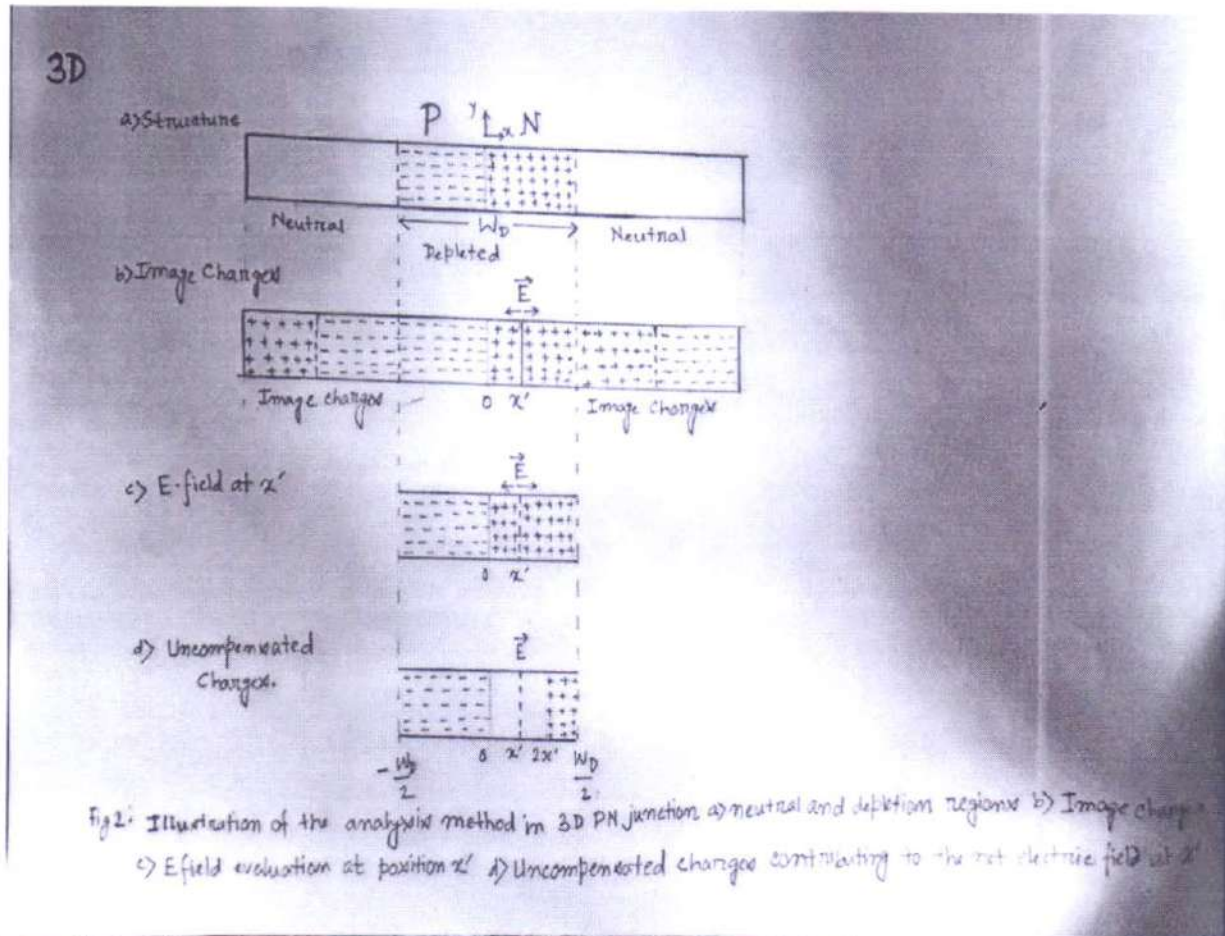 3D
a) Structure
P y x N
Neutral W_D Neutral
Depleted
b) Image Charges
E
Image charges 0 x' Image Charges
c) E-field at x'
E
0 x'
d) Uncompensated
Charges.
E
0 x' 2x'
-W_D/2 W_D/2
Fig 2: Illustration of the analysis method in 3D PN junction a) neutral and depletion regions b) Image
c) E field evaluation at position x' d) Uncompensated charges contributing to the net electric field at x'